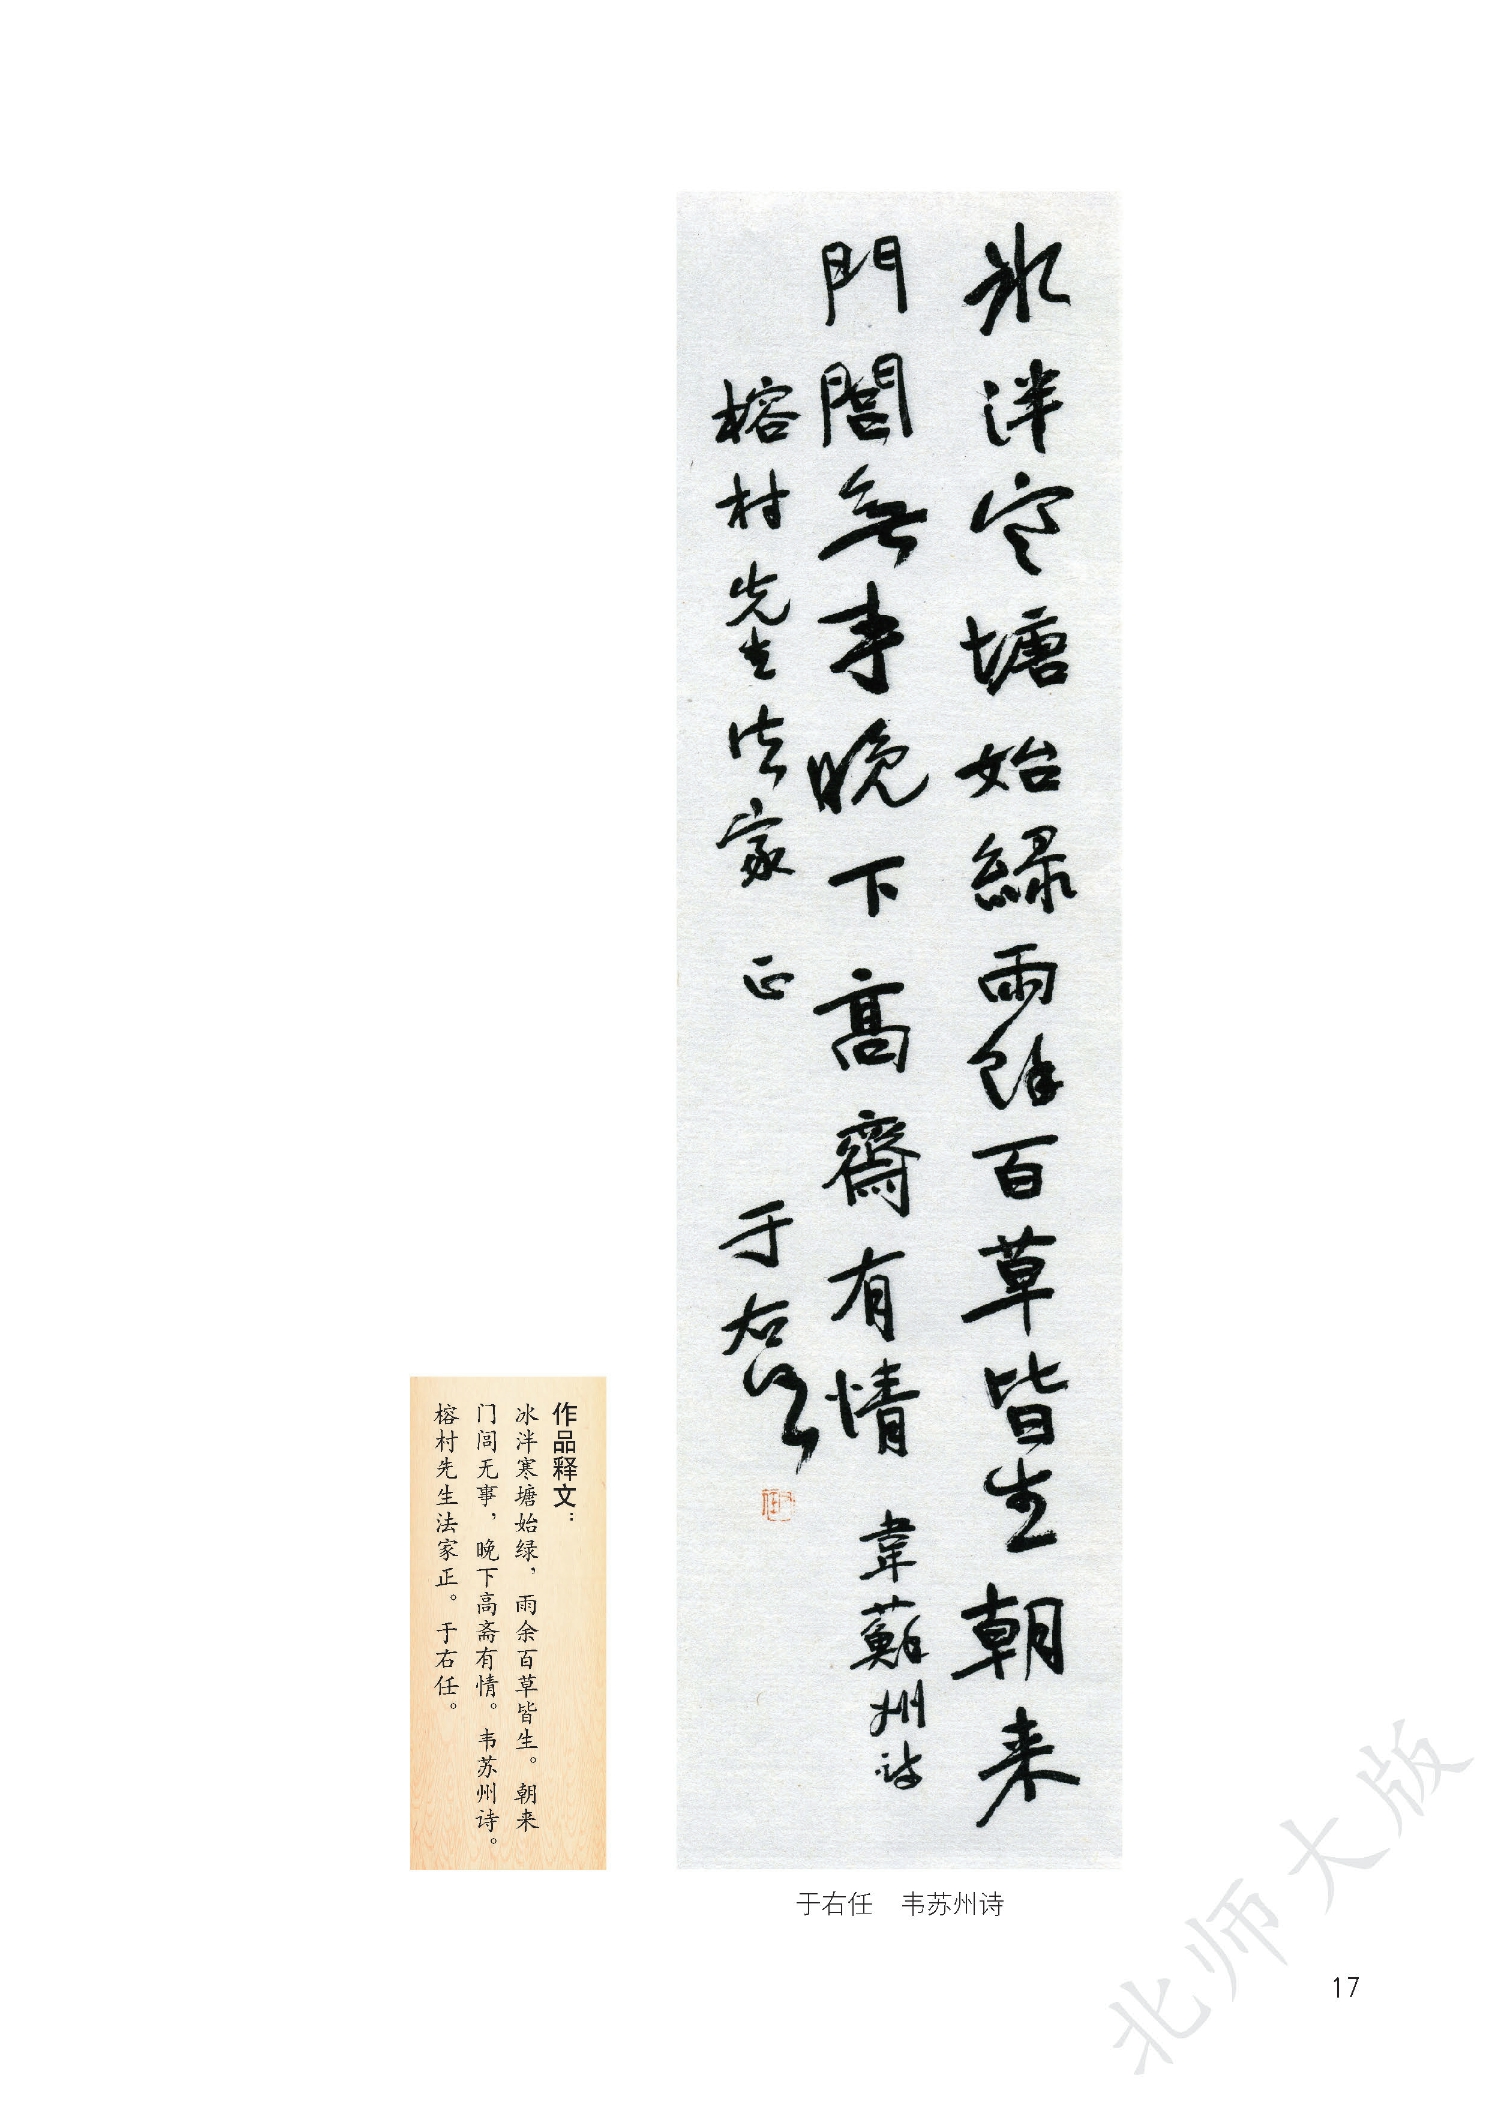 冰泮寒塘始綠雨餘百草皆生朝来
門閭無事晚下高齋有情 韋蘇州詩
榕村先生法家正 于右任
作品释文：
冰泮寒塘始绿，雨余百草皆生。朝来
门闾无事，晚下高斋有情。韦苏州诗。
榕村先生法家正。于右任。
于右任 韦苏州诗
17
北师大版